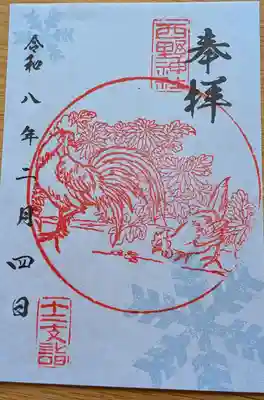 奉拝
西野神社
令和八年二月四日
十二支詣